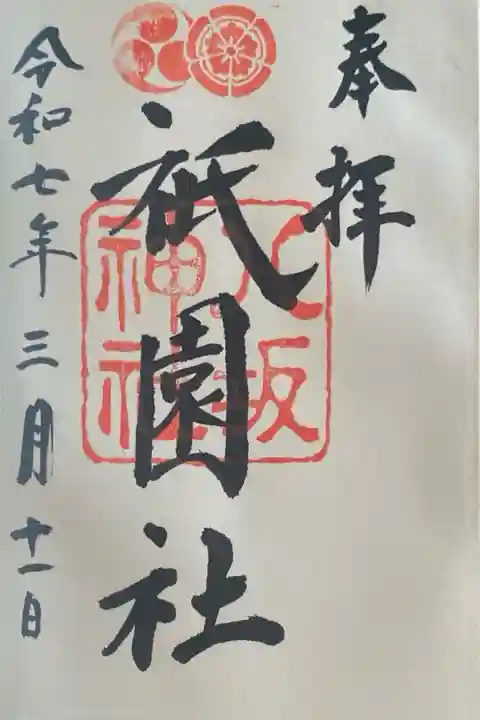 奉拝
祇園社
八坂
神社
令和七年三月十一日